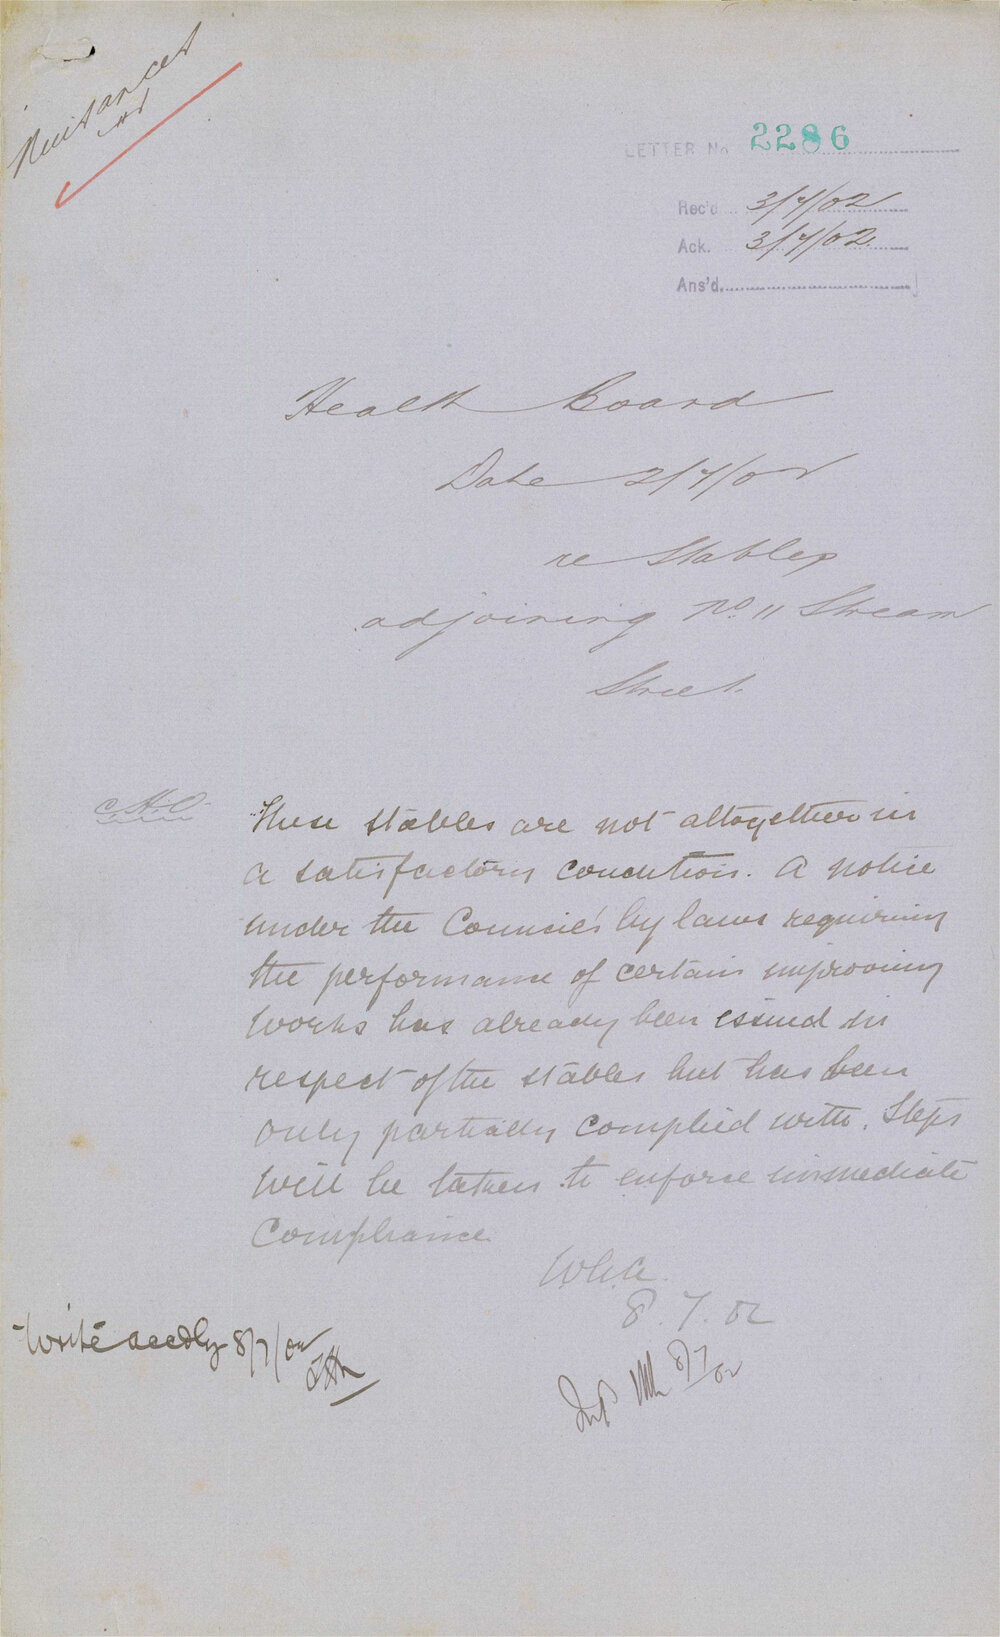 Nuisances
LETTER No 2286
Rec'd 3/7/02
Ack. 3/7/02
Ans'd
Health Board
Date 2/7/02
re Stables
adjoining No. 11 Stream
Street.
C.H.O.
These stables are not altogether in
a satisfactory condition. A notice
under the Council's by laws requiring
the performance of certain improving
works has already been issued in
respect of the stables but has been
only partially complied with. Steps
will be taken to enforce immediate
compliance.
8.7.02
Write accdly 8/7/02
8/7/02